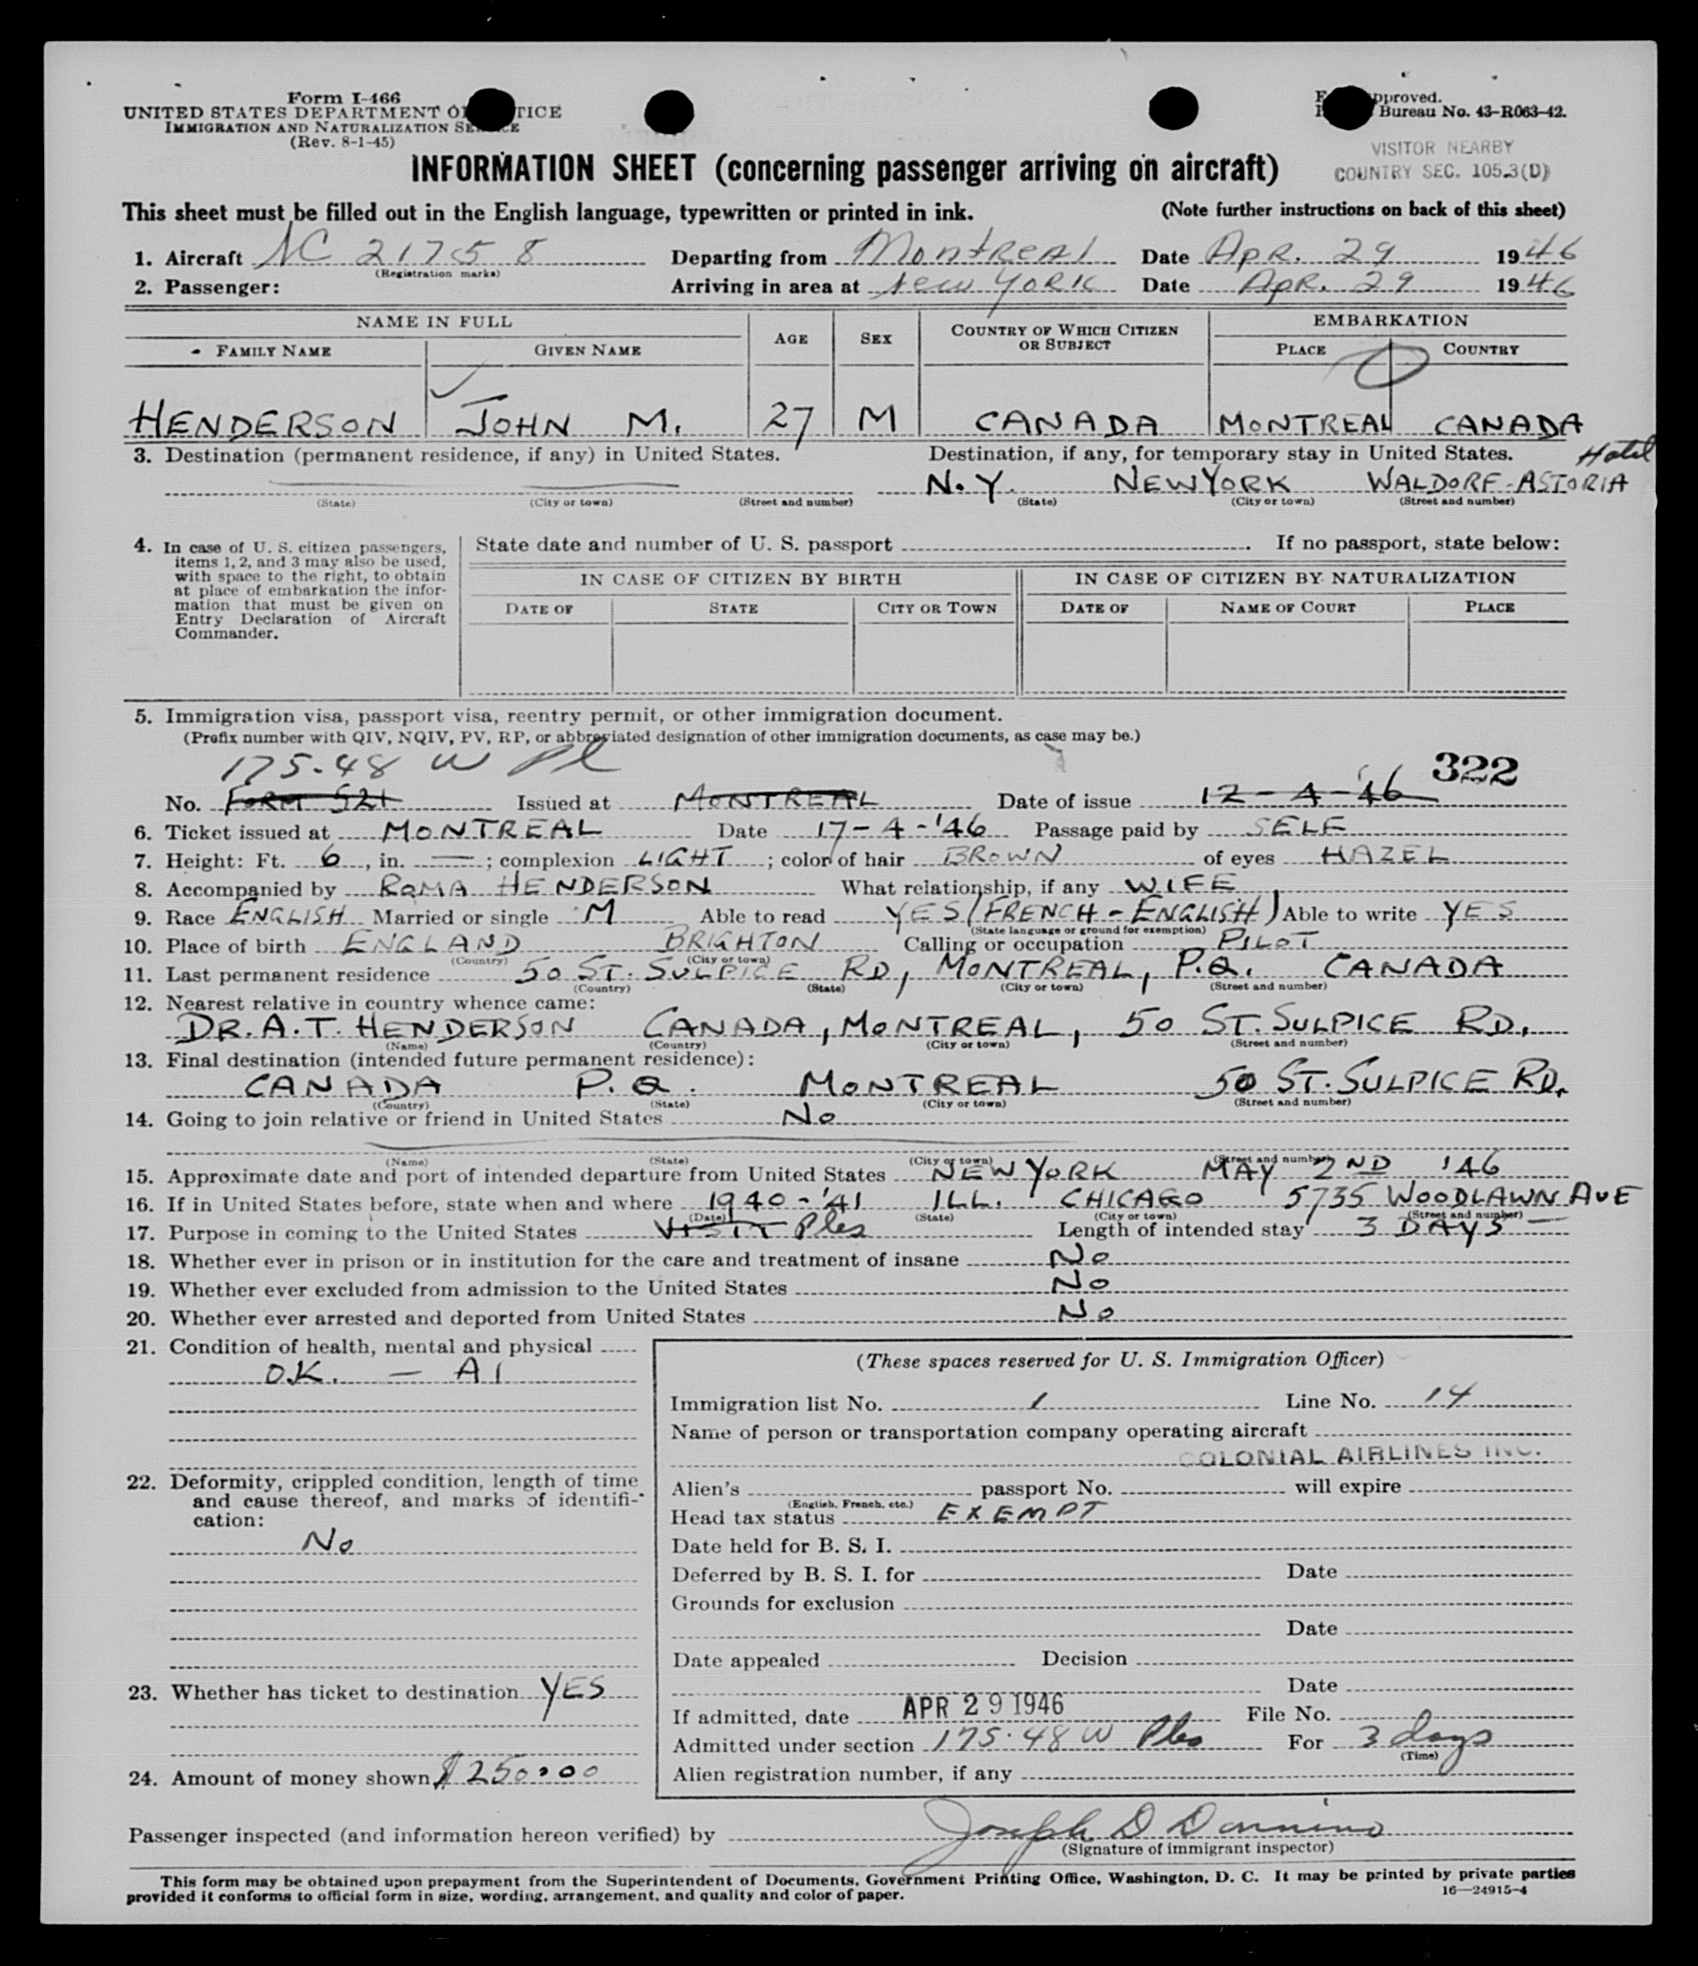 Form I-466
UNITED STATES DEPARTMENT OF JUSTICE
IMMIGRATION AND NATURALIZATION SERVICE
(Rev. 8-1-45)
pproved.
Bureau No. 43-R063-42.
VISITOR NEARBY
COUNTRY SEC. 105.3(D)
INFORMATION SHEET (concerning passenger arriving on aircraft)
This sheet must be filled out in the English language, typewritten or printed in ink. (Note further instructions on back of this sheet)
1. Aircraft NC 21758 Departing from Montreal Date Apr. 29 1946
(Registration marks)
2. Passenger: Arriving in area at New York Date Apr. 29 1946
NAME IN FULL AGE SEX COUNTRY OF WHICH CITIZEN OR SUBJECT EMBARKATION
FAMILY NAME GIVEN NAME PLACE COUNTRY
HENDERSON JOHN M. 27 M CANADA MONTREAL CANADA
3. Destination (permanent residence, if any) in United States. Destination, if any, for temporary stay in United States. Hotel
N.Y. NEW YORK WALDORF-ASTORIA
(State) (City or town) (Street and number) (State) (City or town) (Street and number)
4. In case of U. S. citizen passengers, items 1, 2, and 3 may also be used, with space to the right, to obtain at place of embarkation the information that must be given on Entry Declaration of Aircraft Commander.
State date and number of U. S. passport . If no passport, state below:
IN CASE OF CITIZEN BY BIRTH IN CASE OF CITIZEN BY NATURALIZATION
DATE OF STATE CITY OR TOWN DATE OF NAME OF COURT PLACE
5. Immigration visa, passport visa, reentry permit, or other immigration document.
(Prefix number with QIV, NQIV, PV, RP, or abbreviated designation of other immigration documents, as case may be.)
175.48 W Pl
322
No. FORM 521 Issued at MONTREAL Date of issue 12-4-'46
6. Ticket issued at MONTREAL Date 17-4-'46 Passage paid by SELF
7. Height: Ft. 6, in. — ; complexion LIGHT ; color of hair BROWN of eyes HAZEL
8. Accompanied by ROMA HENDERSON What relationship, if any WIFE
9. Race ENGLISH Married or single M Able to read YES (FRENCH-ENGLISH) Able to write YES
(State language or ground for exemption)
10. Place of birth ENGLAND BRIGHTON Calling or occupation PILOT
(Country) (City or town)
11. Last permanent residence 50 ST. SULPICE RD, MONTREAL, P.Q. CANADA
(Country) (State) (City or town) (Street and number)
12. Nearest relative in country whence came:
DR. A.T. HENDERSON CANADA, MONTREAL, 50 ST. SULPICE RD.
(Name) (Country) (City or town) (Street and number)
13. Final destination (intended future permanent residence):
CANADA P.Q. MONTREAL 50 ST. SULPICE RD.
(Country) (State) (City or town) (Street and number)
14. Going to join relative or friend in United States No
(Name) (State) (City or town) (Street and number)
15. Approximate date and port of intended departure from United States NEW YORK MAY 2ND '46
16. If in United States before, state when and where 1940-'41 ILL. CHICAGO 5735 WOODLAWN AVE
(Date) (State) (City or town) (Street and number)
17. Purpose in coming to the United States VISIT Ples Length of intended stay 3 DAYS —
18. Whether ever in prison or in institution for the care and treatment of insane No
19. Whether ever excluded from admission to the United States No
20. Whether ever arrested and deported from United States No
21. Condition of health, mental and physical
O.K. — A1
22. Deformity, crippled condition, length of time and cause thereof, and marks of identification:
No
23. Whether has ticket to destination YES
24. Amount of money shown $250.00
(These spaces reserved for U. S. Immigration Officer)
Immigration list No. 1 Line No. 14
Name of person or transportation company operating aircraft
COLONIAL AIRLINES INC.
Alien's passport No. will expire
(English, French, etc.)
Head tax status EXEMPT
Date held for B. S. I.
Deferred by B. S. I. for Date
Grounds for exclusion
Date
Date appealed Decision
Date
If admitted, date APR 29 1946 File No.
Admitted under section 175.48 W Ples For 3 days
(Time)
Alien registration number, if any
Passenger inspected (and information hereon verified) by Joseph D Dannino
(Signature of immigrant inspector)
This form may be obtained upon prepayment from the Superintendent of Documents, Government Printing Office, Washington, D. C. It may be printed by private parties
provided it conforms to official form in size, wording, arrangement, and quality and color of paper.
16—24915-4